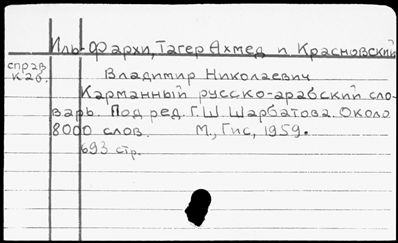 Иль-Фархи, Тагер Ахмед и Красновский
справ
каб.
Владимир Николаевич
Карманный русско-арабский сло-
варь. Под ред. Г.Ш. Шарбатова. Около
8000 слов. М., Гис, 1959.
693 стр.